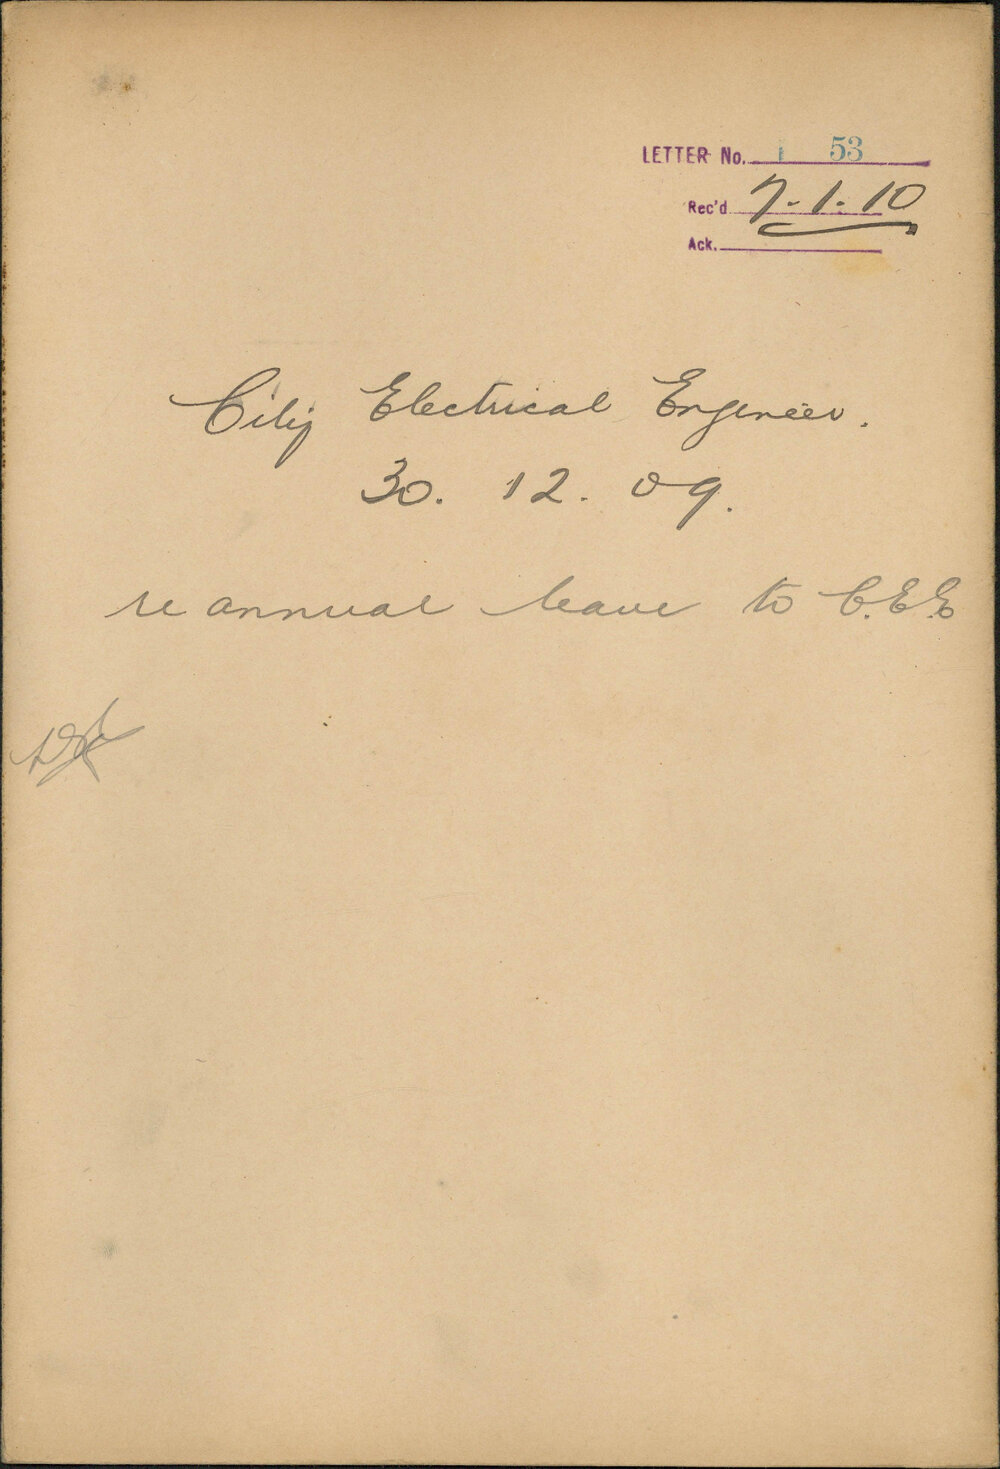 LETTER No. 53
Rec'd 7.1.10
Ack.
City Electrical Engineer.
30. 12. 09.
re annual leave to C.E.E